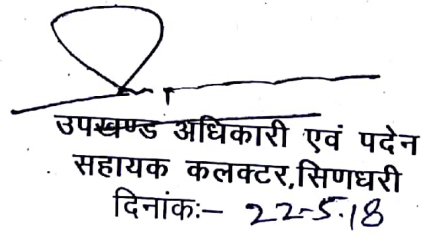 उपखण्ड अधिकारी एवं पदेन
सहायक कलक्टर,सिणधरी
दिनांकः– 22-5.18